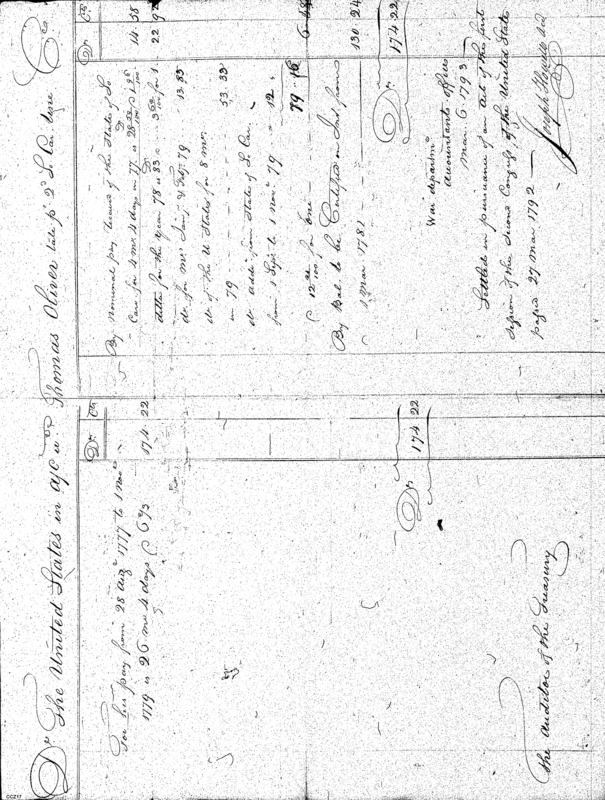 Dr The United States in a/c wth Thomas Oliver late pt 2d So Car Regt Cr
Dr Cts
For his pay from 28 Augt 1777 to 1 Novr
1779 is 26 mos 4 days @ 6 2/3 174.22
Drs 174.22
The Auditor of the Treasury
Dr Cts
By Nominal pay received of the State of So
Caro for 4 mos 4 days in 77 is 14.58
ditto for the year 78 is 83 22.9
do for mos Jany & Feby 79 13.33
do of the U States for 8 mos
in 79 53.33
do from State of So Car.
from 1 Sept to 1 Novr 79 12.
79.16
@ 12 for one 6.48
By Bal. to be Certified on Int. from
1 Mar 1781 130.24
Drs 174.22
War departmt
Accountants office
Mar 6. 1793
Settled in pursuance of an Act of the first
session of the Second Congress, of the United States
passed 27 Mar 1792
Joseph Howell
CC217